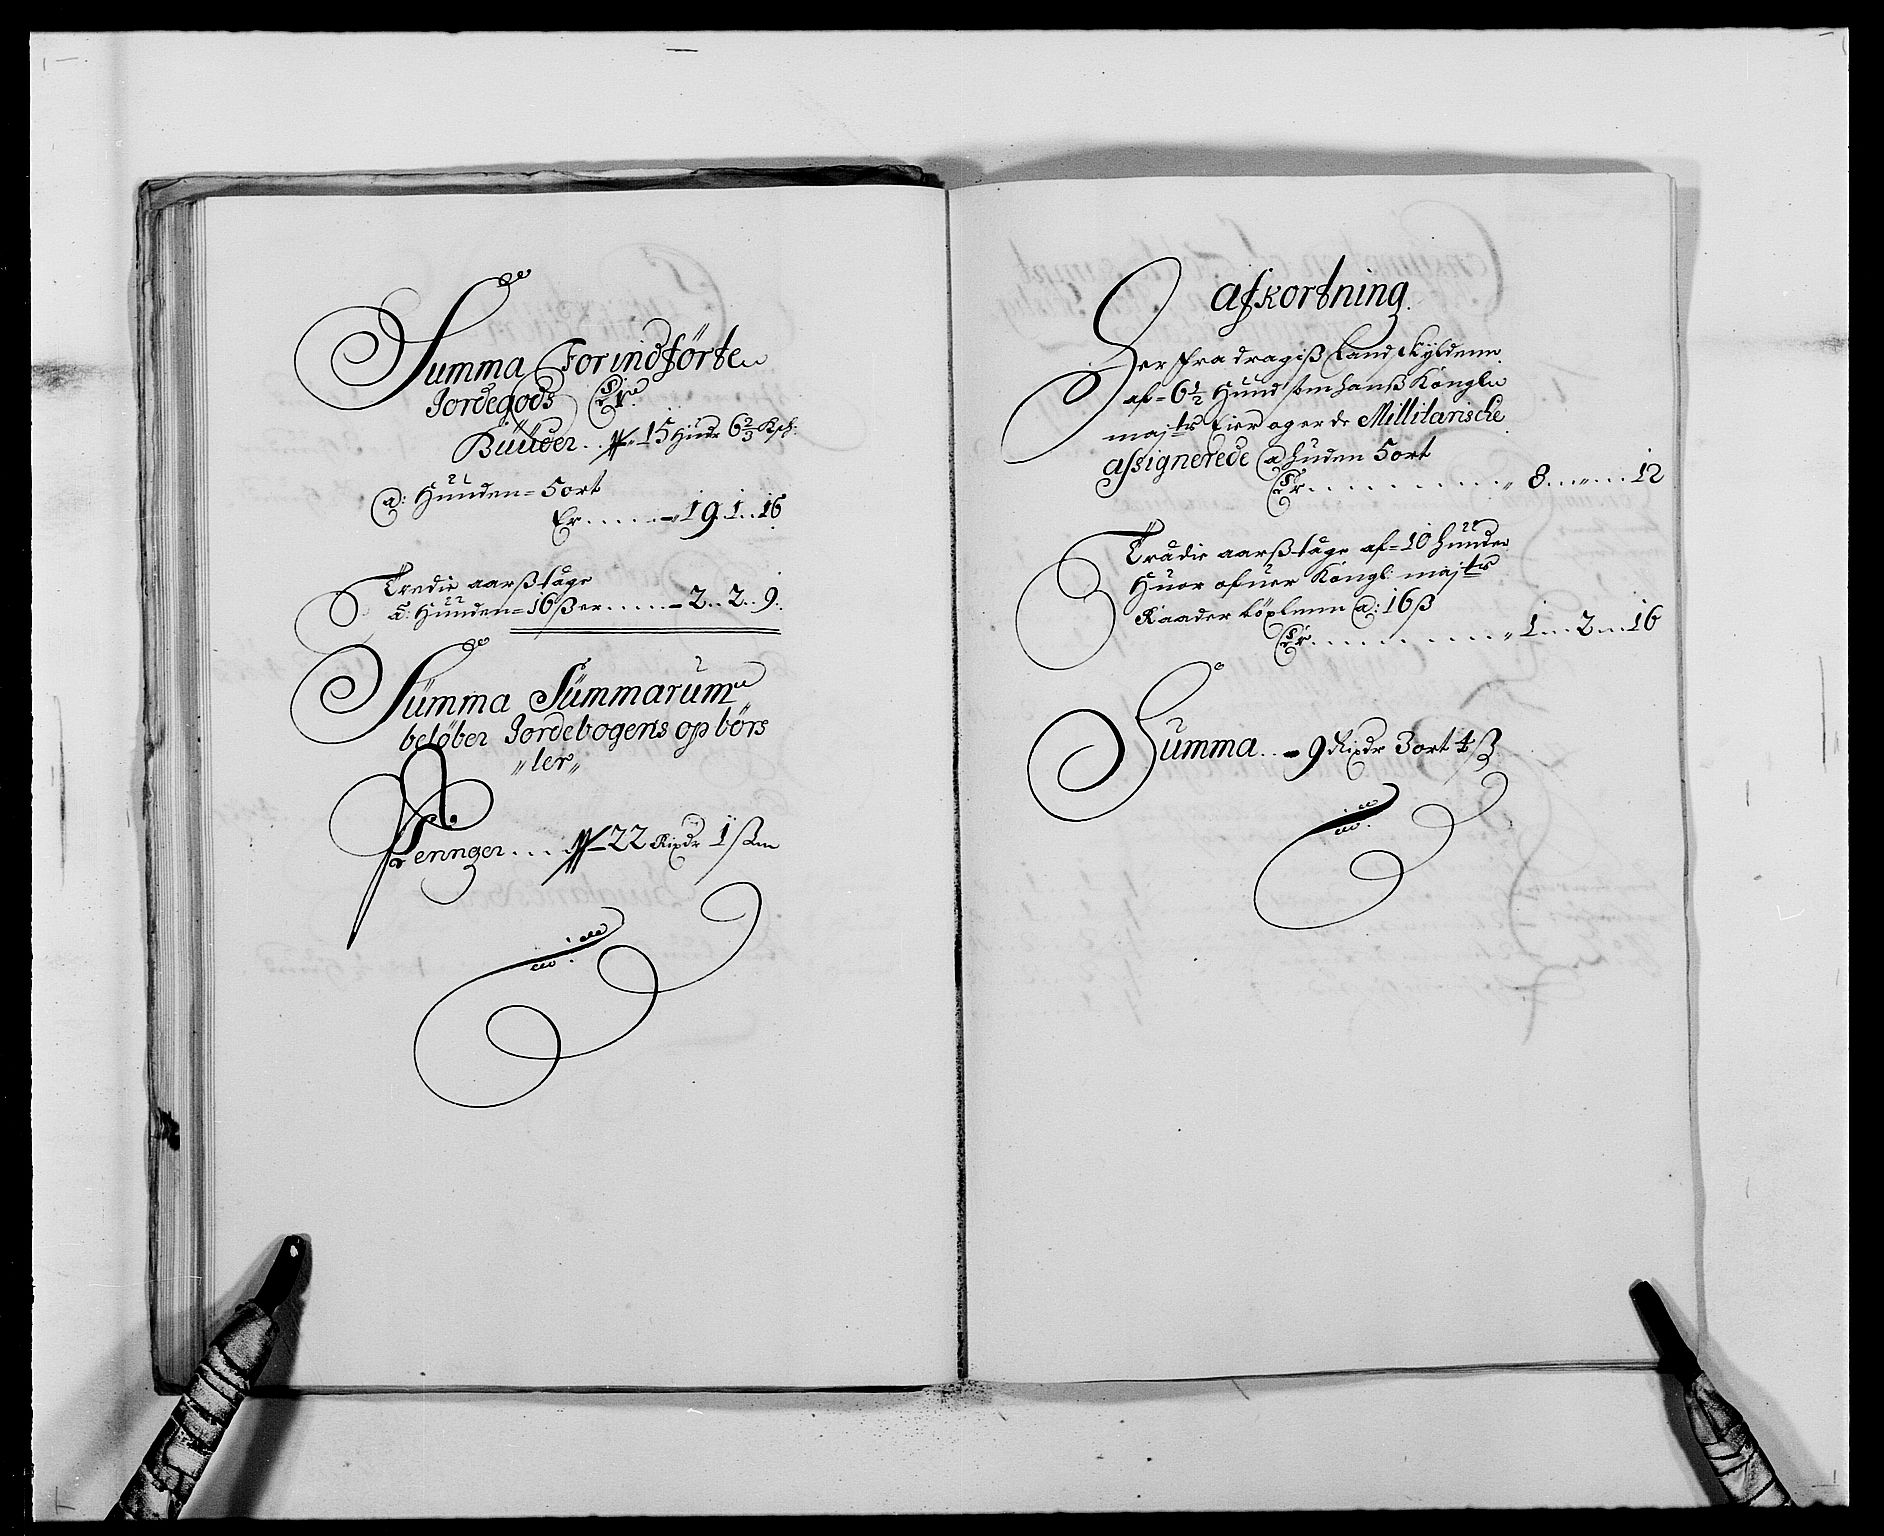 Summa Forindförten
Jordegods Er
Büüder .. 15 Hudr 6 2/3 Ksk:
a: Hünden = 5 ort
Er ...... 19. 1. 16
Tredie aarß tåge
a: Hünden = 16 ß er ..... 2 .. 2 .. 9.
Summa Summarum
beløber Jordebogens opbörs
"ler"
Pennger .... 22 Rixdr 1 ß
afkortning.
Her fra dragiß Landskyldenn
af = 6 1/2 Hund som hanß Kongln
majtr Eier og er de Millitarische
assignerede a hüden 5 ort
Er .......... 8 ...... 12
Trådie aarß tåge af = 10 hüüder
Huor ofuer Kongl: majtr
Raader bøxlenn a: 16 ß
Er .......... 1 ... 2 ... 16
Summa .. 9 Rixdr 3 ort 4 ß